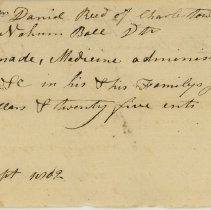 Daniel Reed of Charlestow
Nahum Ball Dr
made, Medicine adminis
&c in his & his Familys
llars & twenty five ents